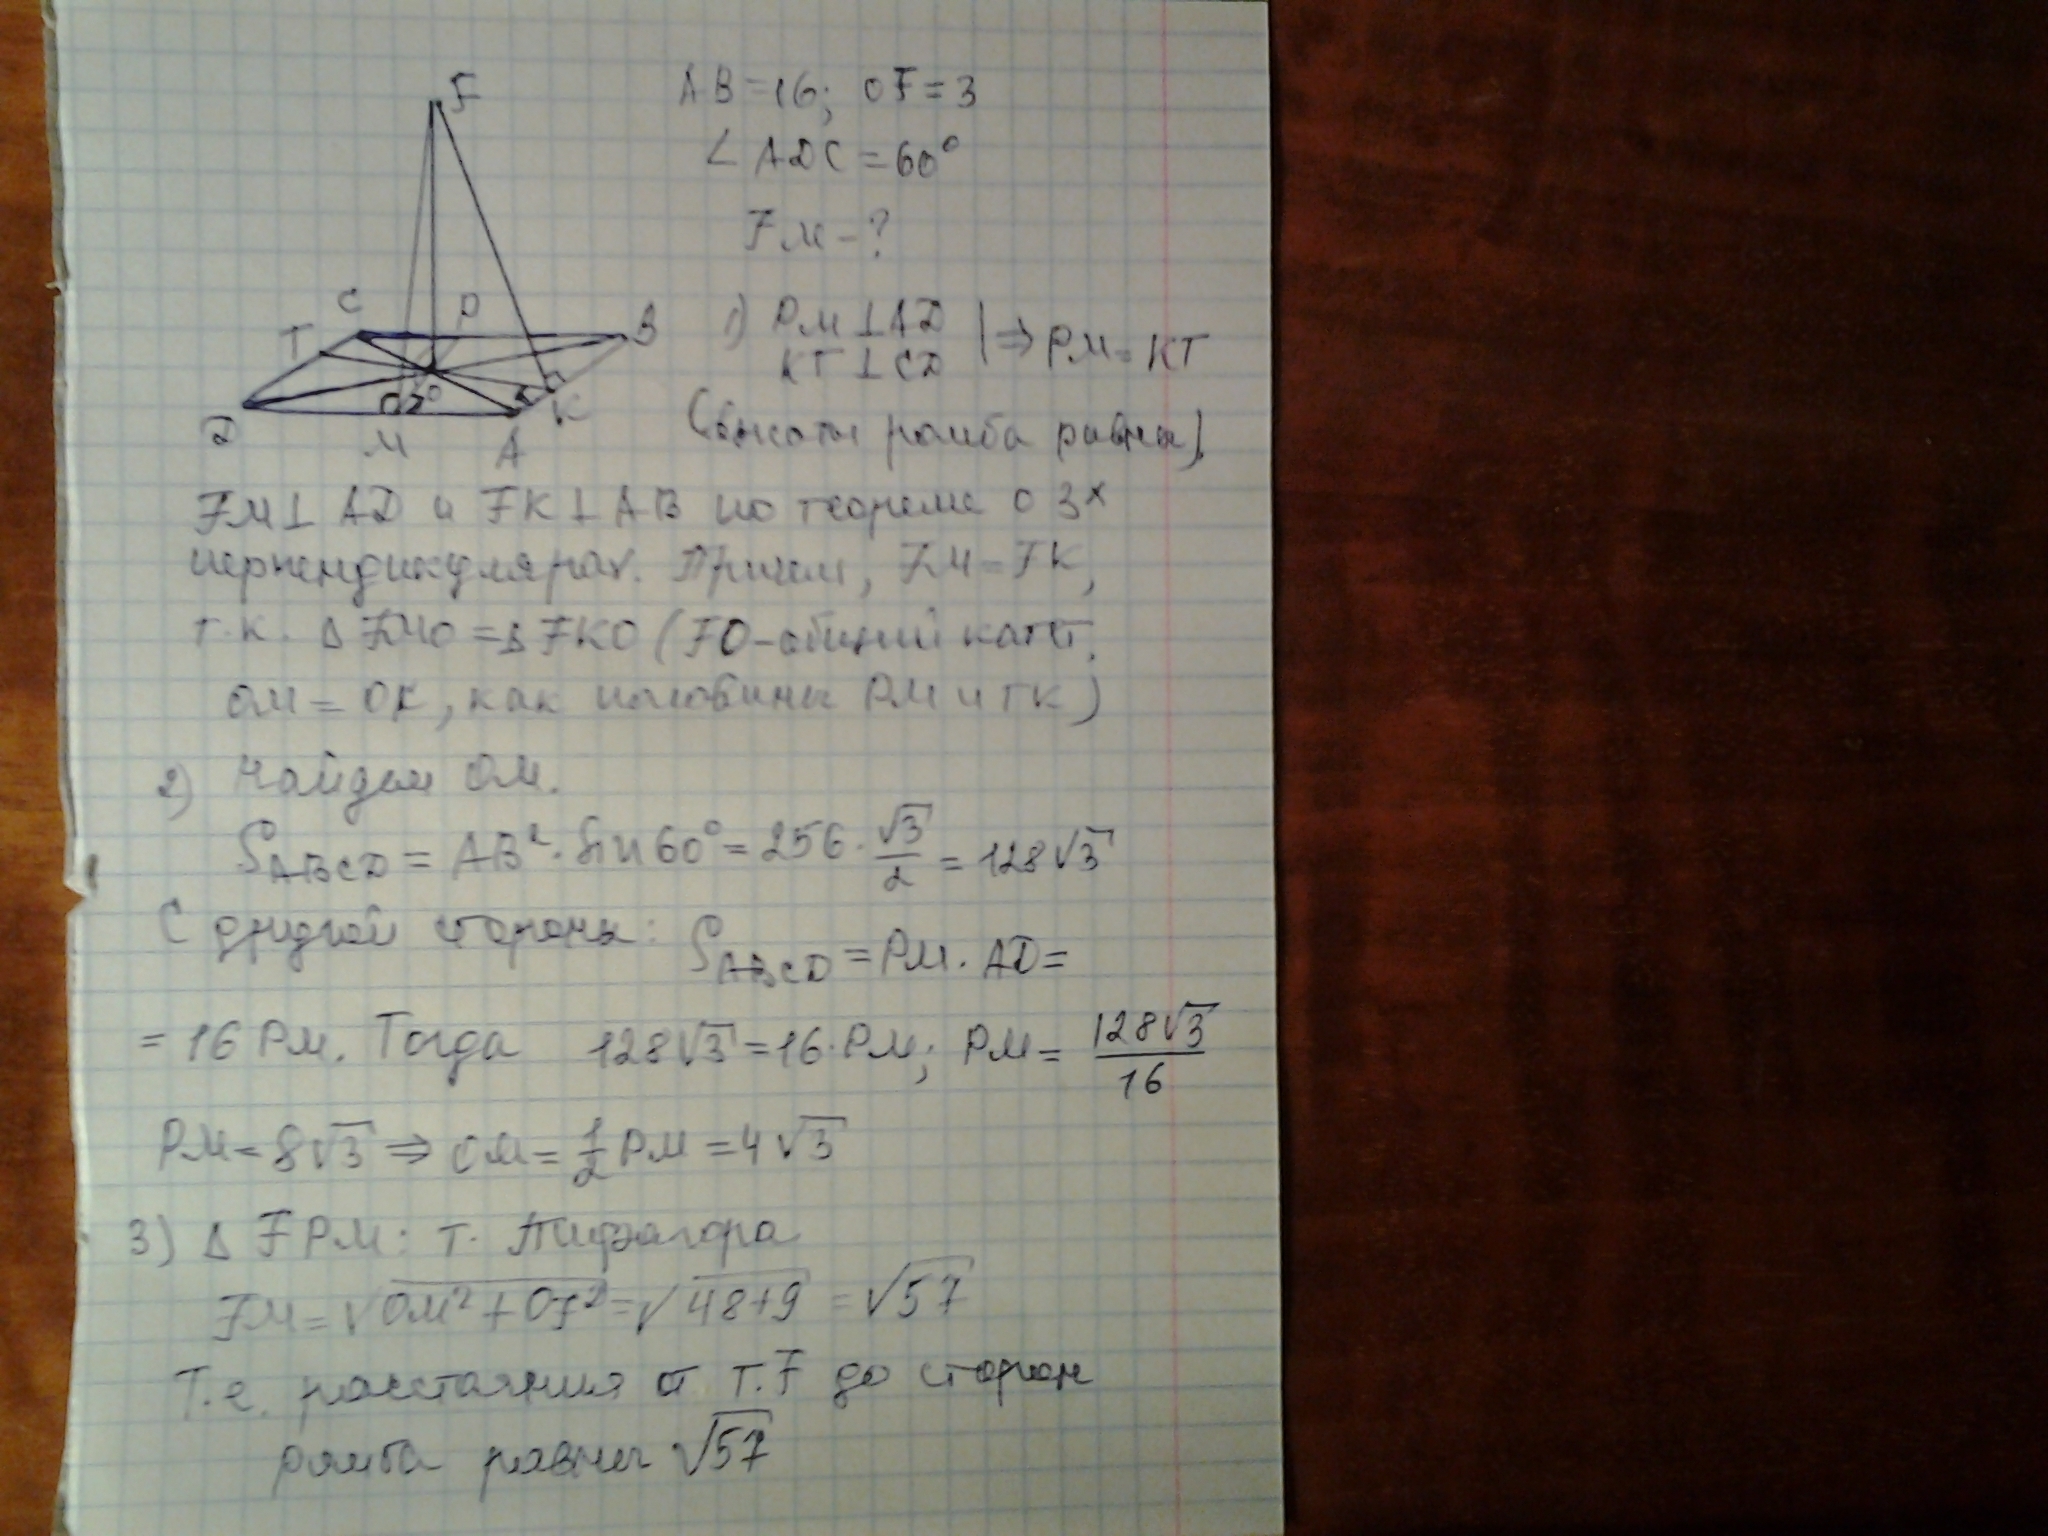 F
C
P
B
T
O
D
M
A
K
AB=16; OF=3
∠ADC=60°
FM-?
1) PM⊥AD
KT⊥CD | ⇒ PM=KT
(высоты ромба равны).
FM⊥AD и FK⊥AB по теореме о 3х
перпендикулярах. Причем, FM=FK,
т.к. ΔFMO=ΔFKO (FO-общий катет,
OM=OK, как половины PM и TK)
2) Найдем OM.
S_ABCD = AB²·sin60°=256·√3/2=128√3
С другой стороны: S_ABCD=PM·AD=
=16PM. Тогда 128√3=16·PM; PM=128√3/16
PM=8√3 ⇒ OM=1/2PM=4√3
3) ΔFPM: т. Пифагора
FM=√OM²+OF²=√48+9=√57
Т.е. расстояния от т.F до сторон
ромба равны √57